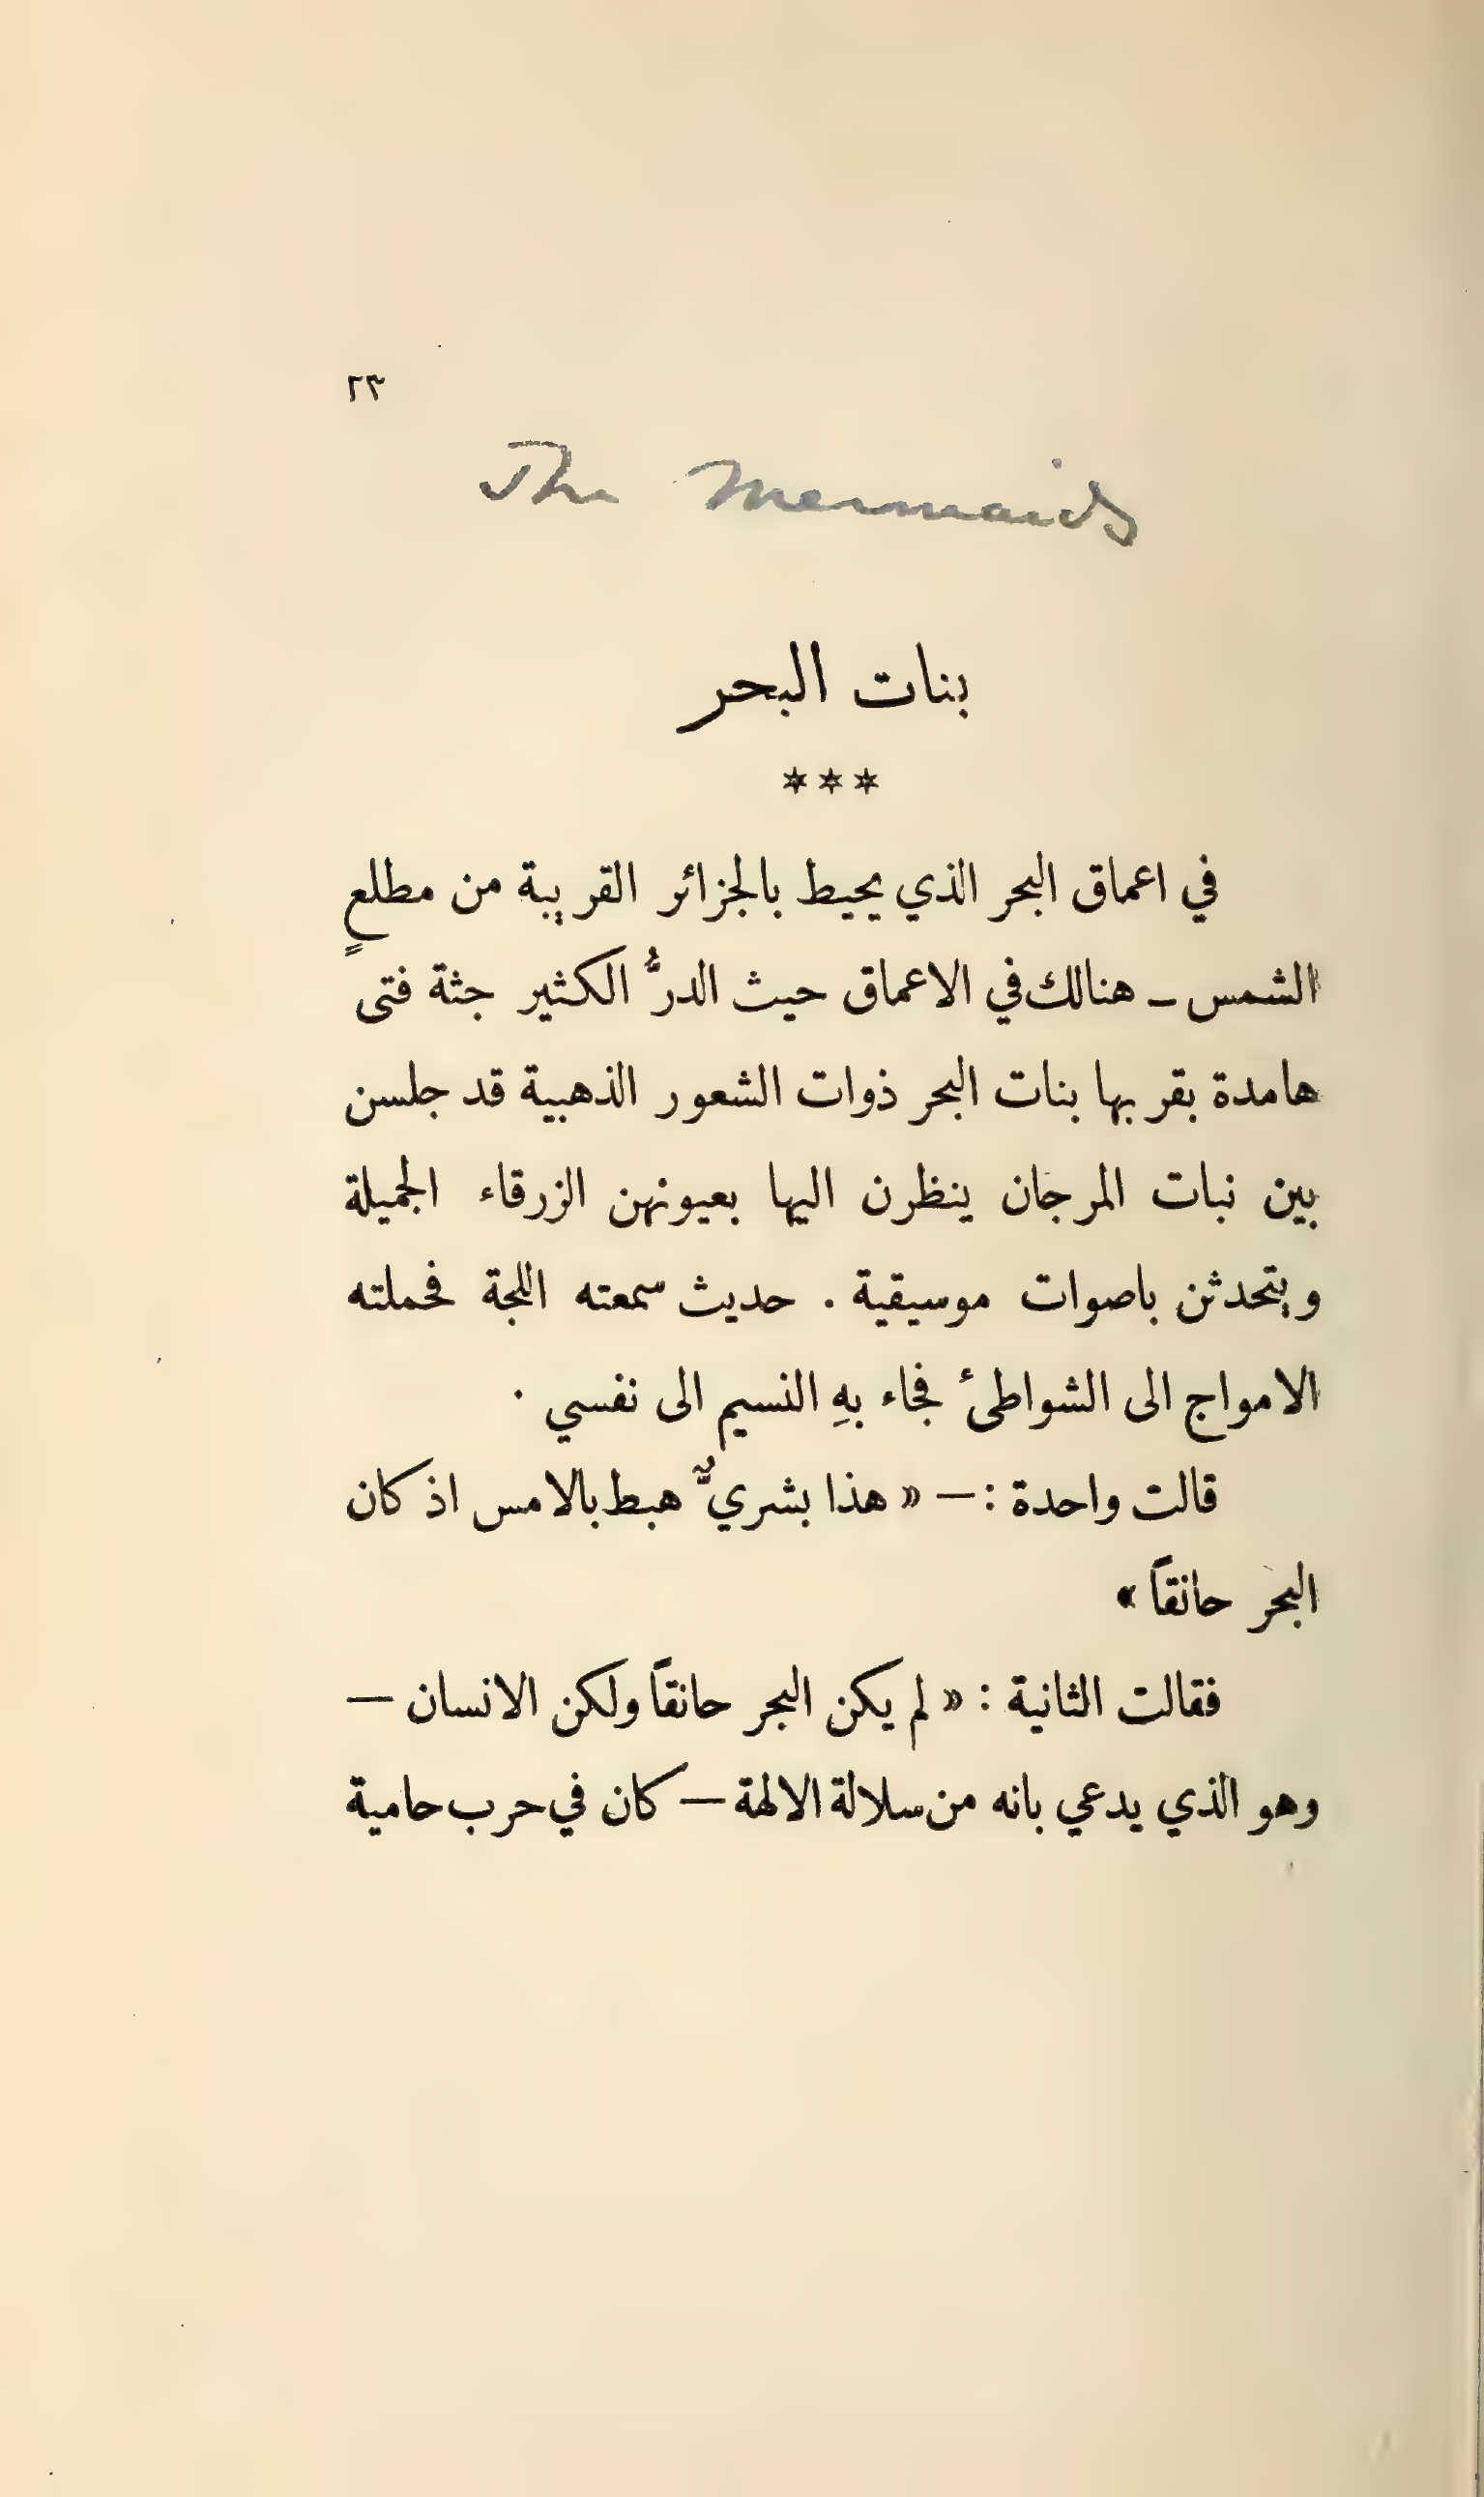 ٢٣
The Mermaids
بنات البحر
***
في اعماق البحر الذي يحيط بالجزائر القريبة من مطلعٍ
الشمس – هنالك في الاعماق حيث الدرُّ الكثير جثة فتى
هامدة بقربها بنات البحر ذوات الشعور الذهبية قد جلسن
بين نبات المرجان ينظرن اليها بعيونهن الزرقاء الجميلة
ويتحدثن باصوات موسيقية . حديث سمعته اللجة فحملته
الامواج الى الشواطئ فجاء بهِ النسيم الى نفسي .
قالت واحدة : — « هذا بشريٌّ هبط بالامس اذ كان
البحر حانقاً »
فقالت الثانية : « لم يكن البحر حانقاً ولكن الانسان —
وهو الذي يدعي بانه من سلالة الالهة — كان في حرب حامية